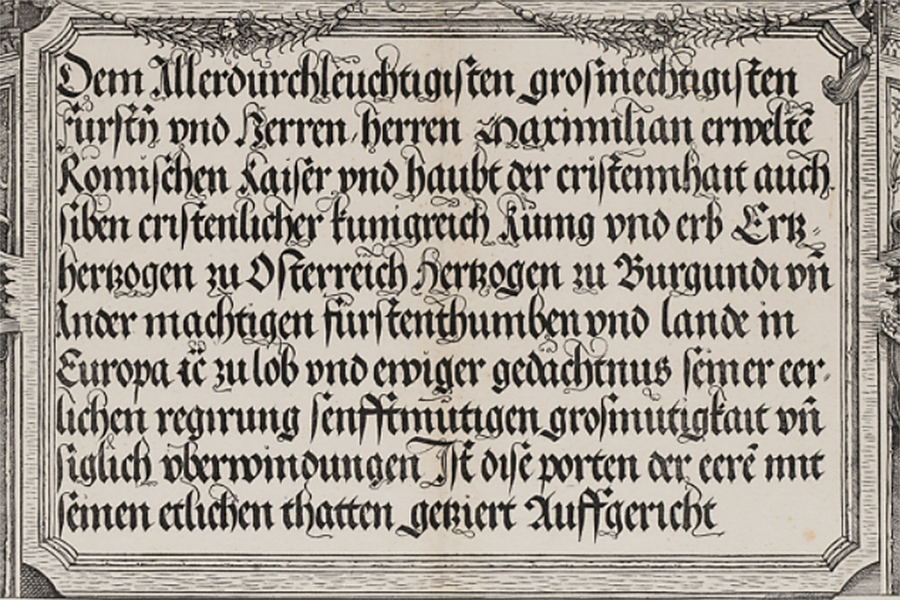 Dem Allerdurchleuchtigisten grosmechtigisten
fürstñ vnd Herren, herren Maximilian erweltē
Romischen Kaiser vnd haubt der cristennhait auch
siben cristenlicher kunigreich Kunig vnd erb Ertz⸗
hertzogen zu Osterreich Hertzogen zu Burgundi vñ
Ander machtigen fürstenthumben vnd lande in
Europa ꝛc̄ zu lob vnd ewiger gedachtnus seiner eer⸗
lichen regirung senfftmütigen grosmütigkait vñ
siglich vberwindungen Ist dise porten der eerē mit
seinen etlichen thatten getziert Auffgericht